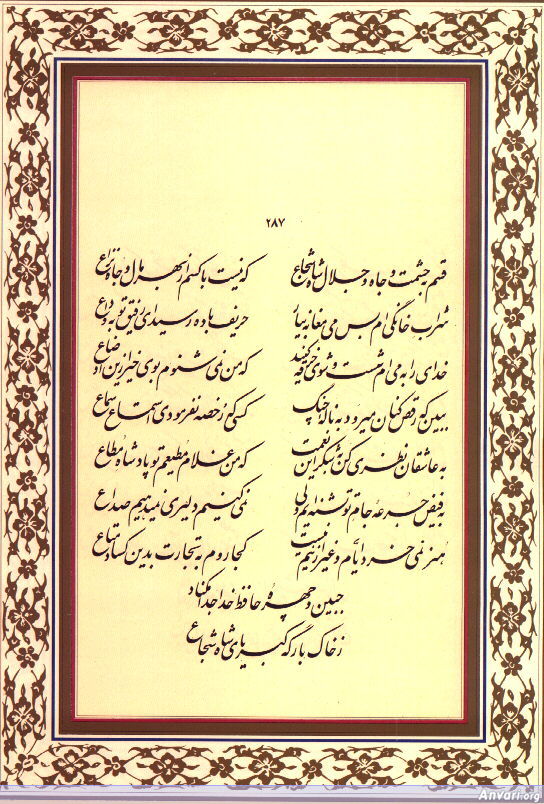 ۲۸۷
قسم به حشمت و جاه و جلال شاه شجاع که نیست با کسم از بهر مال و جاه نزاع
شراب خانگی‌ام بس می مغانه بیار حریف باده رسید ای رفیق توبه وداع
خدای را به می‌ام شست و شوی خرقه کنید که من نمی‌شنوم بوی خیر از این اوضاع
ببین که رقص‌کنان می‌رود به ناله چنگ کسی که رخصه نفرمودی استماع سماع
به عاشقان نظری کن به شکر این نعمت که من غلام مطیعم تو پادشاه مطاع
به فیض جرعه جام تو تشنه‌ایم ولی نمی‌کنیم دلیری نمی‌دهیم صداع
هنر نمی‌خرد ایام و غیر از اینم نیست کجا روم به تجارت بدین کساد متاع
جبین و چهره حافظ خدا جدا مکناد
ز خاک بارگه کبریای شاه شجاع
Anvari.org